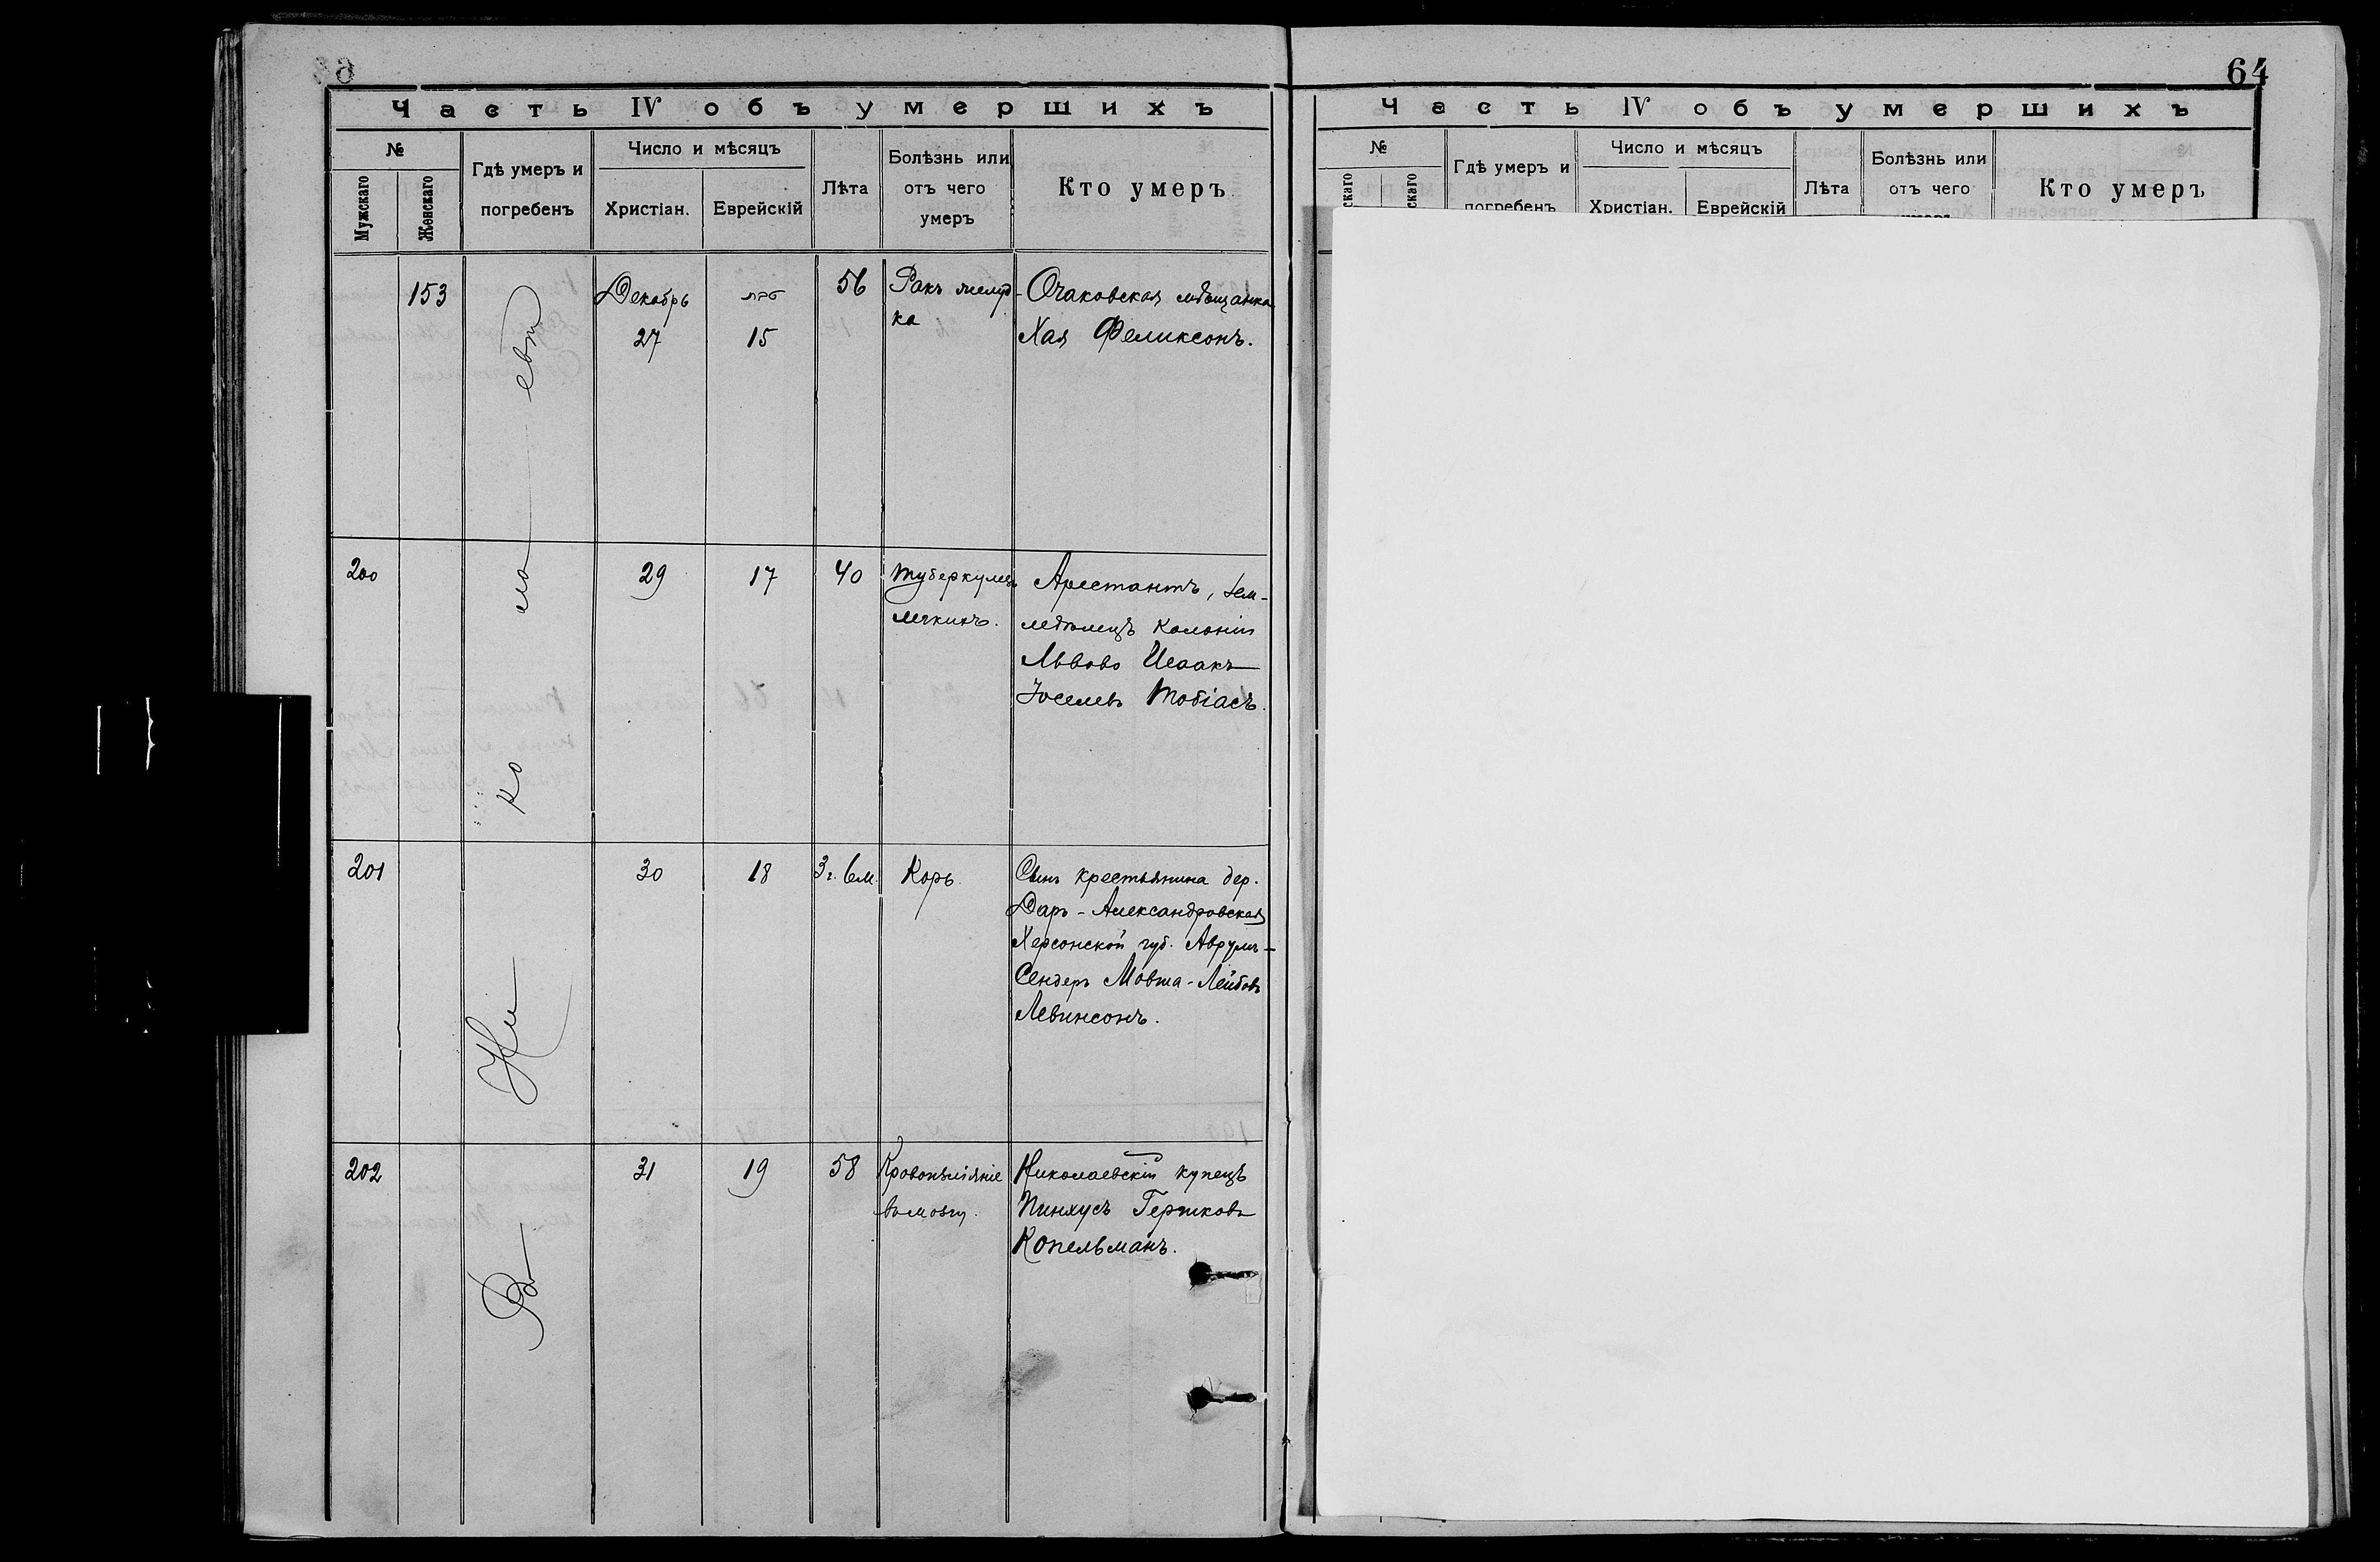 64
Часть IV объ умершихъ
№
Мужскаго
Женскаго
Гдѣ умеръ и
погребенъ
Число и мѣсяцъ
Христіан.
Еврейскій
Лѣта
Болѣзнь или
отъ чего
умеръ
Кто умеръ
Въ Николаевѣ
153
Декабрь
27
טבת
15
56
Ракъ желуд-
ка
Очаковская мѣщанка
Хая Феликсонъ.
200
29
17
40
Туберкулезъ
легкихъ.
Арестантъ, зем-
ледѣлецъ колоніи
Львово Исаакъ
Іоселевъ Тобіасъ.
201
30
18
3 г. 6 м.
Корь.
Сынъ крестьянина дер.
Даръ-Александровская
Херсонской губ. Аврумъ-
Сендеръ Мовша-Лейбовъ
Левинсонъ.
202
31
19
58
Кровоизліяніе
въ мозгу.
Николаевскій купецъ
Пинхусъ Гершковъ
Копельманъ.
Часть IV объ умершихъ
№
скаго
скаго
Гдѣ умеръ и
погребенъ
Число и мѣсяцъ
Христіан.
Еврейскій
Лѣта
Болѣзнь или
отъ чего
Кто умеръ